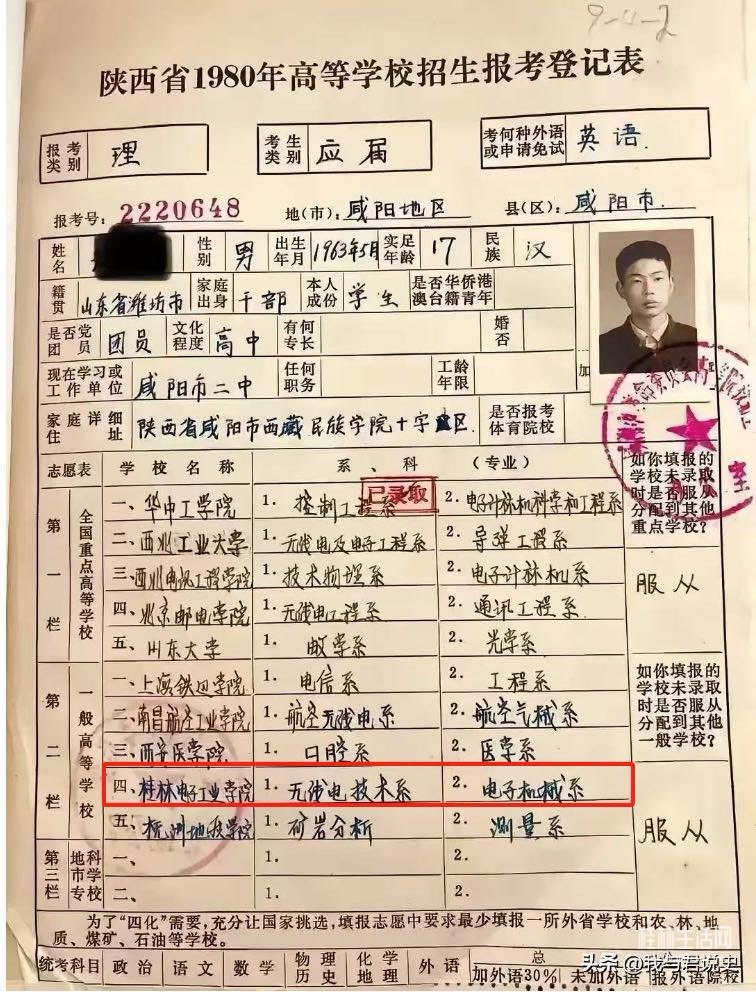 9-4-2
陕西省1980年高等学校招生报考登记表
报考类别 理 考生类别 应届 考何种外语或申请免试 英语
报考号：2220648 地(市)：咸阳地区 县(区)：咸阳市
姓名 性别 男 出生年月 1963年5月 实足年龄 17 民族 汉
籍贯 山东省潍坊市 家庭出身 干部 本人成份 学生 是否华侨港澳台籍青年
是否党团员 团员 文化程度 高中 有何专长 婚否
现在学习或工作单位 咸阳市二中 任何职务 工龄年限 加
家庭详细住址 陕西省咸阳市西藏民族学院十字区 是否报考体育院校
志愿表 学校名称 系、科 (专业) 如你填报的学校未录取时是否服从分配到其他重点学校？
已录取
第一栏 全国重点高等学校 一、华中工学院 1. 控制工程系 2. 电子计祘机科学和工程系
二、西北工业大学 1. 无线电及电子工程系 2. 导弹工程系
三、西北电讯工程学院 1. 技术物理系 2. 电子计祘机系 服从
四、北京邮电学院 1. 无线电工程系 2. 通讯工程系
五、山东大学 1. 数学系 2. 光学系
第二栏 一般高等学校 一、上海铁道学院 1. 电信系 2. 工程系 如你填报的学校未录取时是否服从分配到其他一般学校？
二、南昌航空工业学院 1. 航空无线电系 2. 航空气械系
三、西安医学院 1. 口腔系 2. 医学系
四、桂林电子工业学院 1. 无线电技术系 2. 电子机械系
五、杭州地质学院 1. 矿岩分析 2. 测量系 服从
第三栏 地市科学专校 一、 1. 2.
二、 1. 2.
为了“四化”需要，充分让国家挑选，填报志愿中要求最少填报一所外省学校和农、林、地
质、煤矿、石油等学校。
统考科目 政治 语文 数学 物理 历史 化学 地理 外语 总 加外语30% 未加外语 报外语院校
桂林生活网
头条 @我与君说史